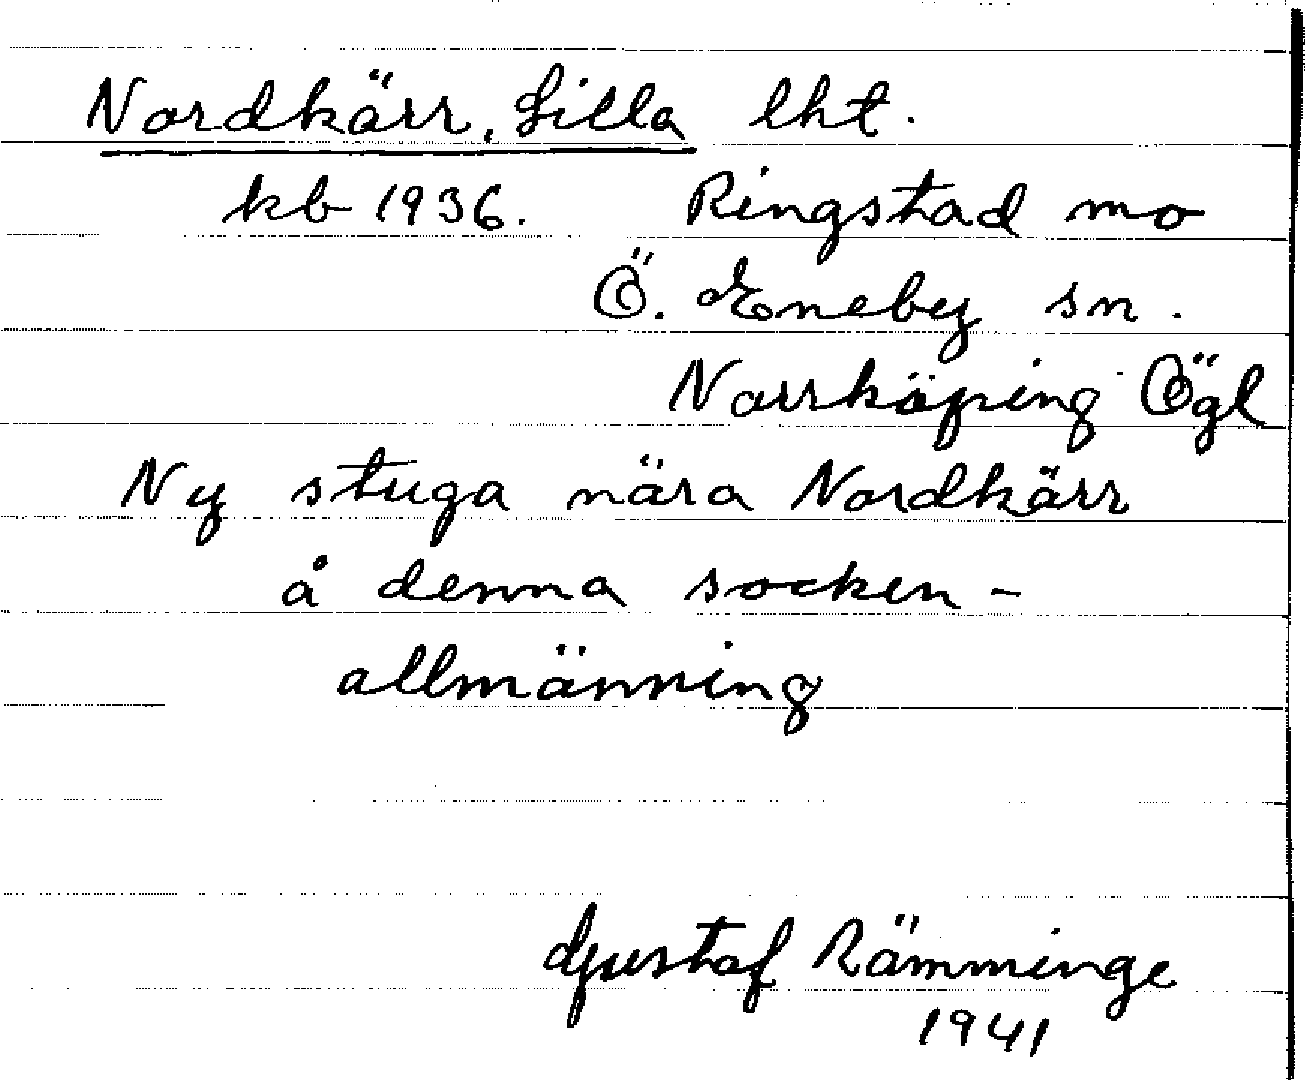 Nordkärr, Lilla lht.
kb 1936. Ringstad mo
Ö. Eneby sn.
Norrköping Ögl
Ny stuga nära Nordkärr
å denna socken-
allmänning
Gustaf Rämminge
1941